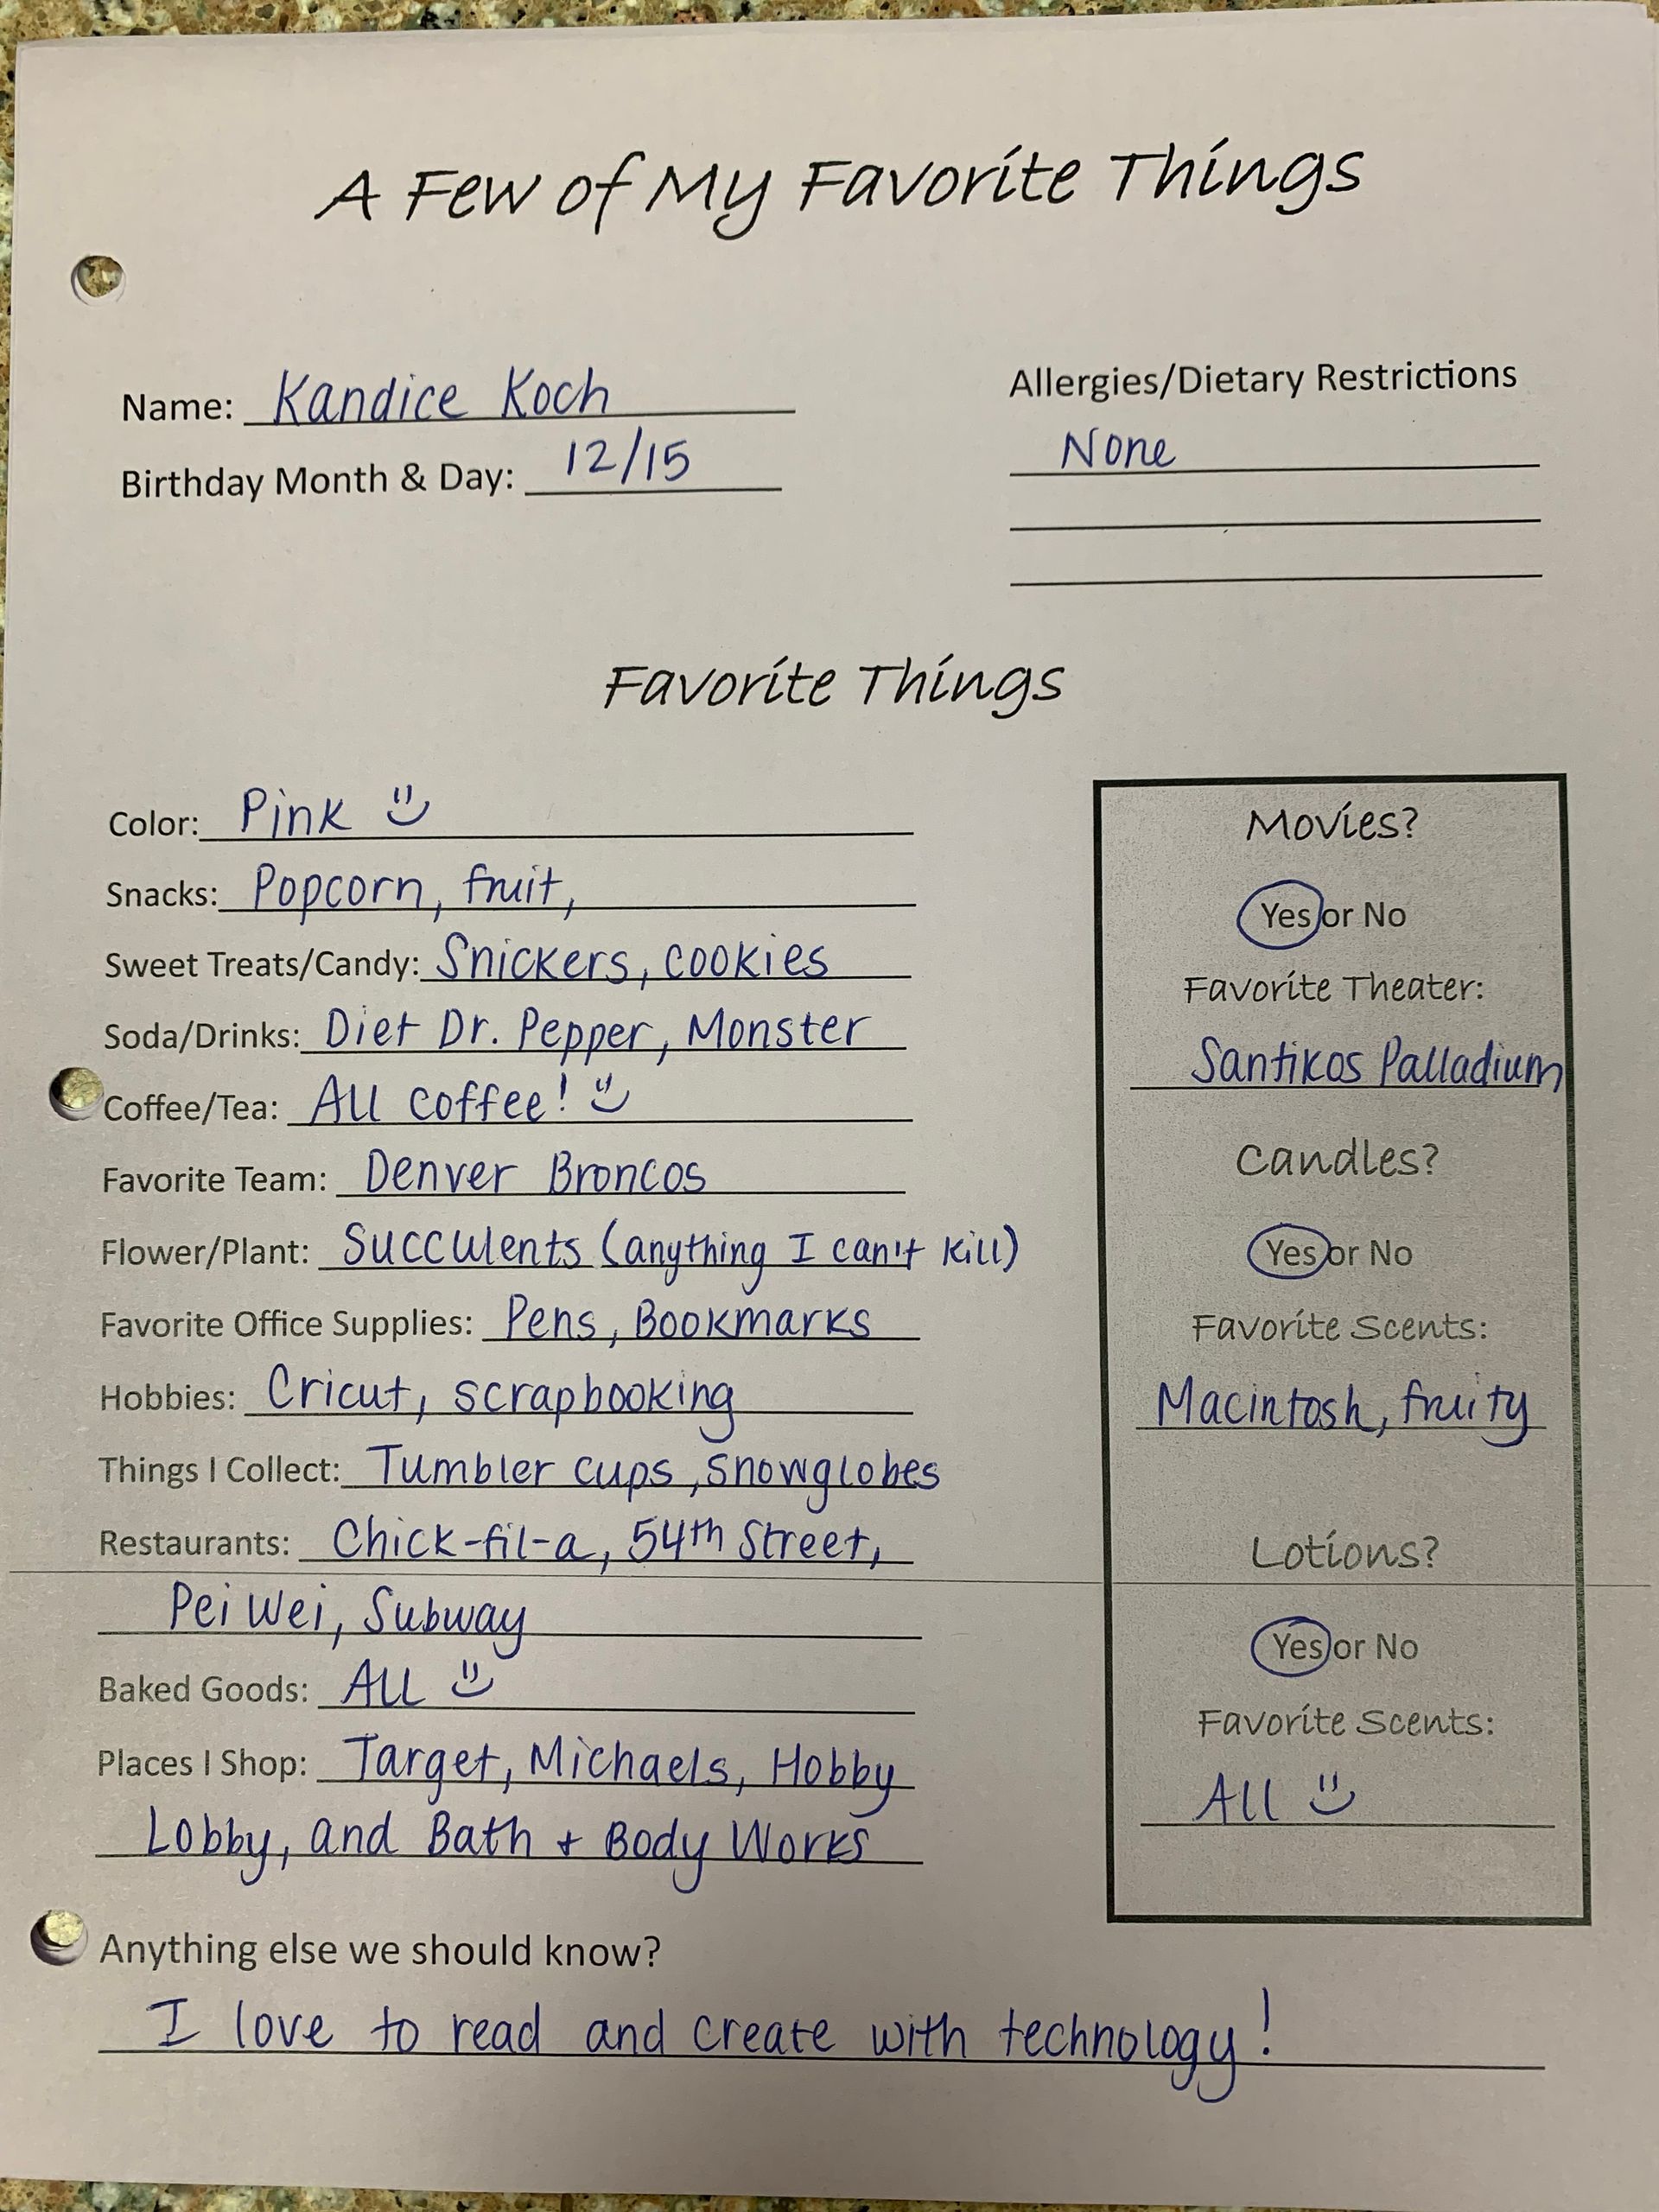 A Few of My Favorite Things
Name: Kandice Koch
Birthday Month & Day: 12/15
Allergies/Dietary Restrictions
None
Favorite Things
Color: Pink
Snacks: Popcorn, fruit,
Sweet Treats/Candy: Snickers, cookies
Soda/Drinks: Diet Dr. Pepper, Monster
Coffee/Tea: All coffee!
Favorite Team: Denver Broncos
Flower/Plant: Succulents (anything I can't kill)
Favorite Office Supplies: Pens, Bookmarks
Hobbies: Cricut, scrapbooking
Things I Collect: Tumbler cups, snowglobes
Restaurants: Chick-fil-a, 54th Street,
Pei Wei, Subway
Baked Goods: All
Places I Shop: Target, Michaels, Hobby
Lobby, and Bath + Body Works
Movies?
Yes or No
Favorite Theater:
Santikos Palladium
Candles?
Yes or No
Favorite Scents:
Macintosh, fruity
Lotions?
Yes or No
Favorite Scents:
All
Anything else we should know?
I love to read and create with technology!